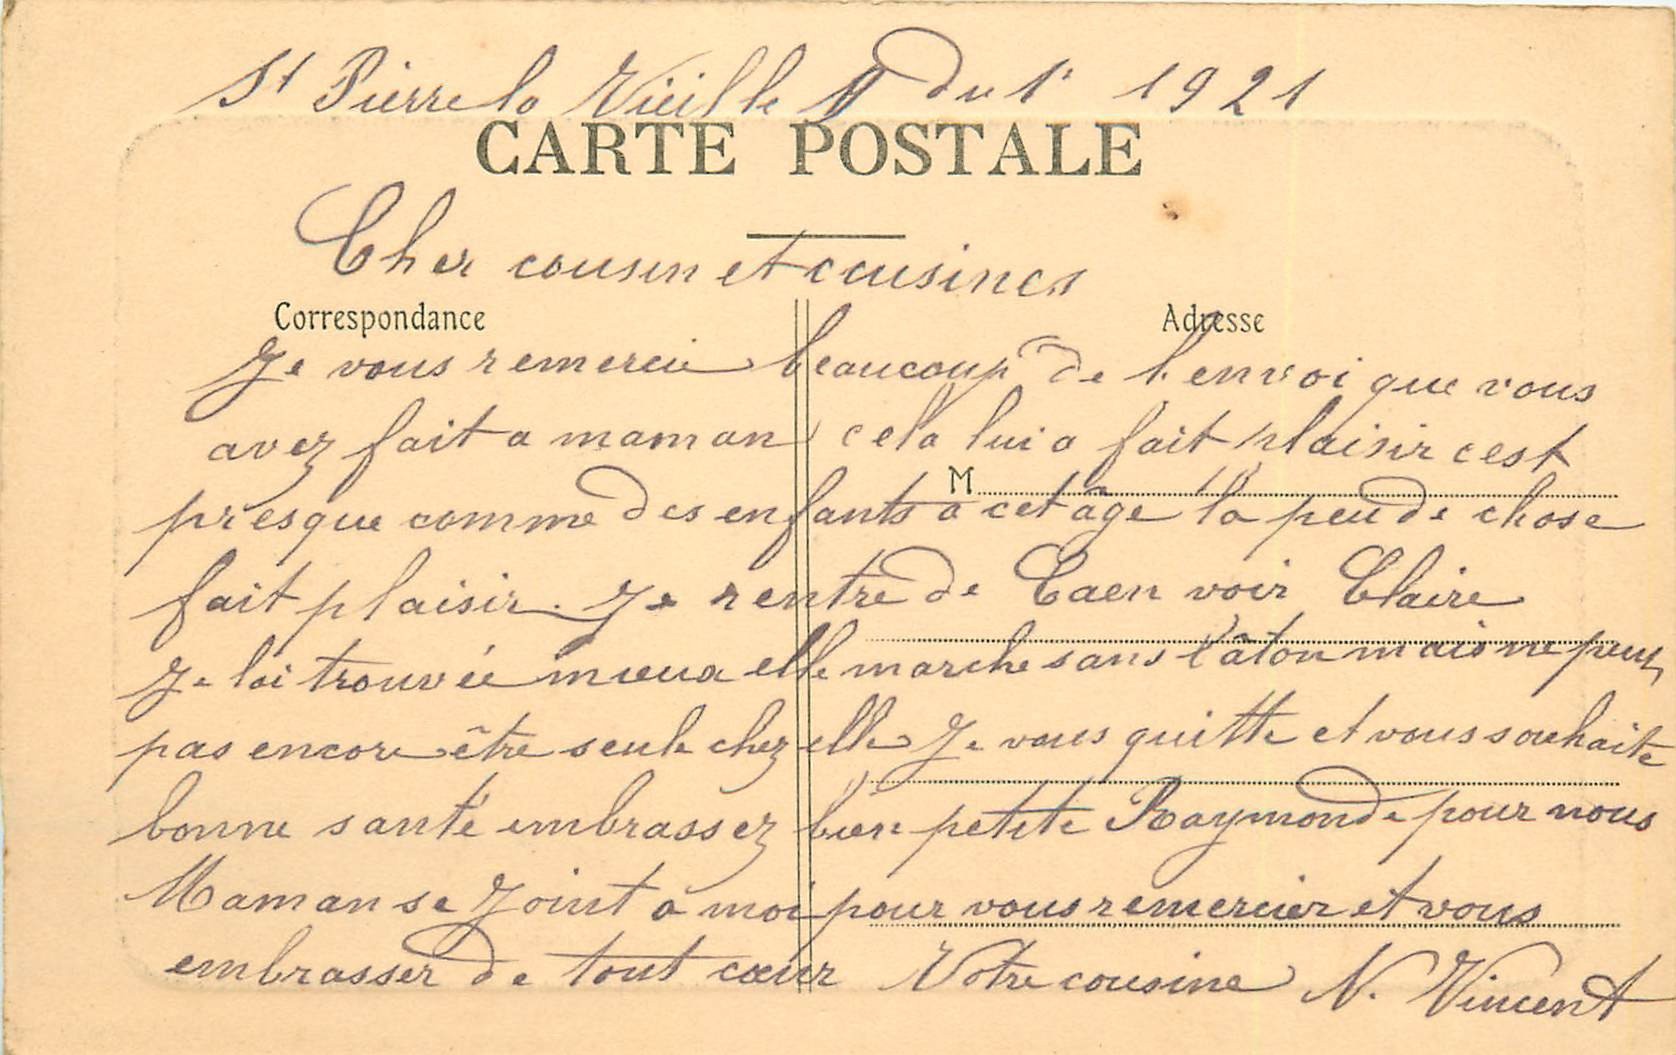 St Pierre la Vieille du 1r 1921
CARTE POSTALE
Cher cousin et cousines
Correspondance
Adresse
Je vous remercie beaucoup de l'envoi que vous
avez fait a maman cela lui a fait plaisir cest
M
presque comme des enfants a cet âge la peu de chose
fait plaisir. Je rentre de Caen voir Claire
Je lai trouvée mieux elle marche sans bâton mais ne peux
pas encore être seule chez elle Je vous quitte et vous souhaite
bonne santé embrassez bien petite Raymonde pour nous
Maman se joint a moi pour vous remercier et vous
embrasser de tout cœur Votre cousine N. Vincent